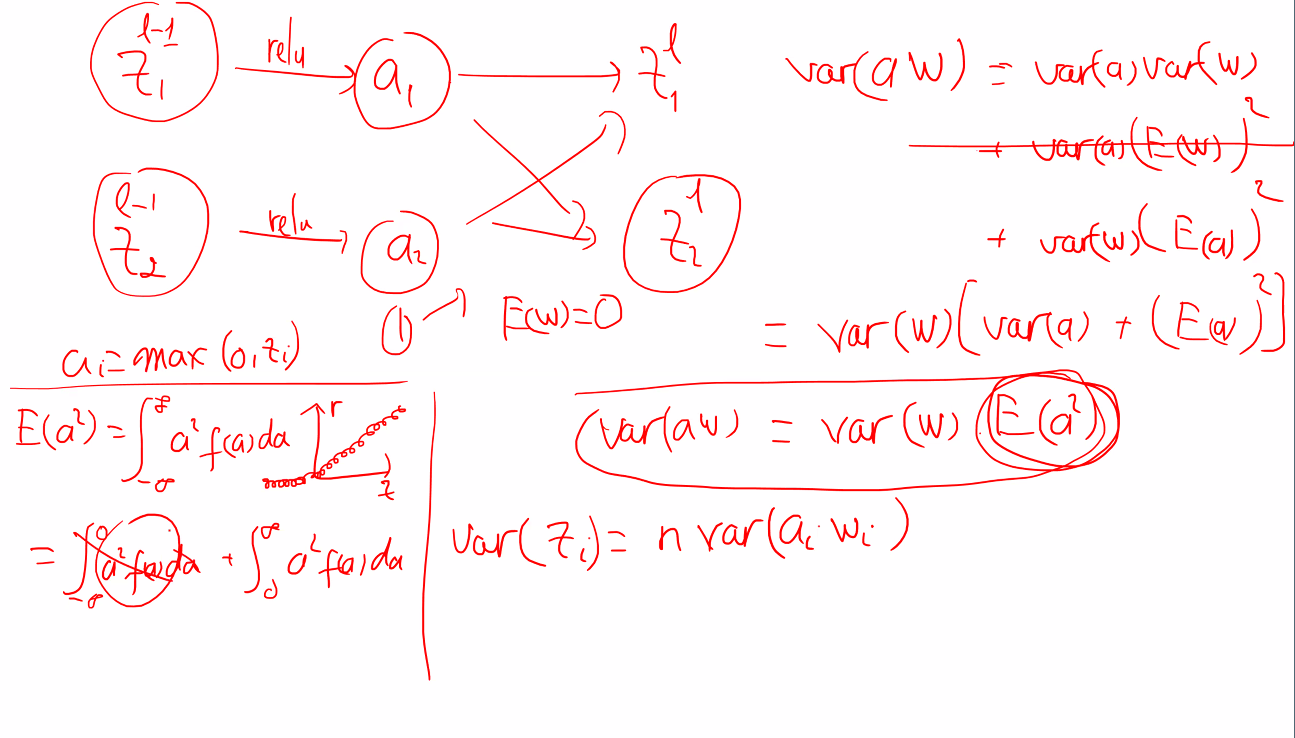 z₁^{l-1} relu a₁ z₁^l
z₂^{l-1} relu a₂ z₂^l
① E(w)=0
aᵢ = max(0, zᵢ)
var(aw) = var(a)var(w)
+ var(a)(E(w))²
+ var(w)(E(a))²
= var(w)[var(a) + (E(a))²]
var(aw) = var(w) E(a²)
E(a²) = ∫_{-∞}^{∞} a² f(a)da
r
z
= ∫_{-∞}^{0} a² f(a)da + ∫_{0}^{∞} a² f(a)da
var(zᵢ) = n var(aᵢ wᵢ)